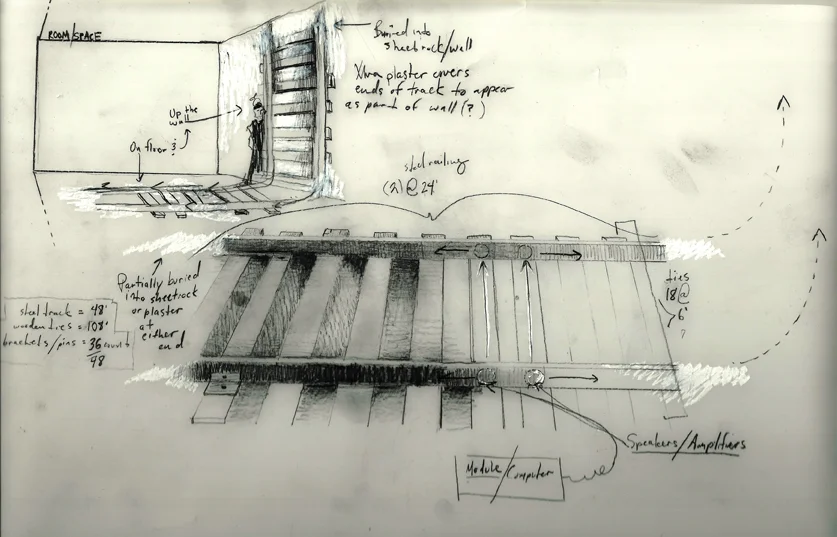 ROOM/SPACE
Buried into
sheetrock/wall
Xtra plaster covers
ends of track to appear
as part of wall (?)
Up the
wall
On floor &
steel railing
(2) @ 24'
Partially buried
into sheetrock
or plaster
at
either
end
ties
18 @
6'
?
steel track = 48'
wooden ties = 108'
brackets/pins = 36 count
48
Speakers/Amplifiers
Module/Computer